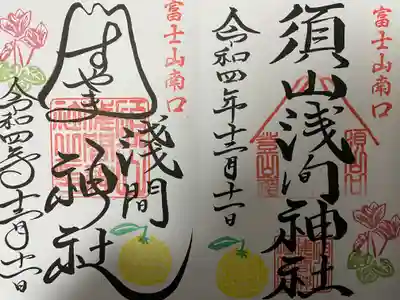 富士山南口
須山浅间神社
令和四年十二月十一日
富士山南口
すやま
淺間
神社
令和四年十二月十一日